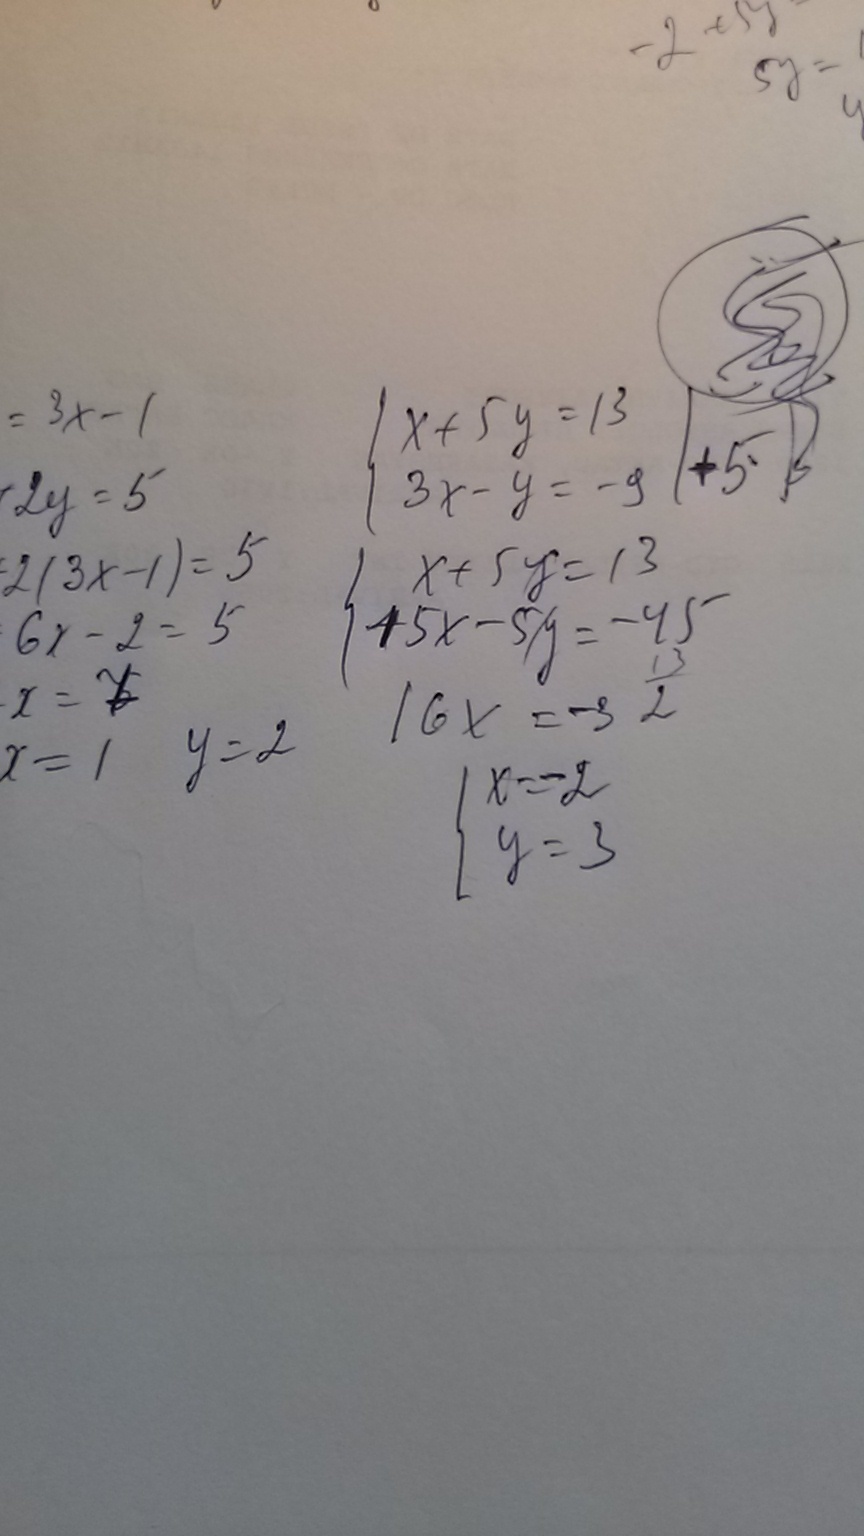 -2 + 5y
5y =
y
= 3x - 1
+ 2y = 5
2(3x - 1) = 5
6x - 2 = 5
x = 7
x = 1 y = 2
x + 5y = 13
3x - y = -9 | +5
x + 5y = 13
15x - 5y = -45
13
16x = -32
x = -2
y = 3